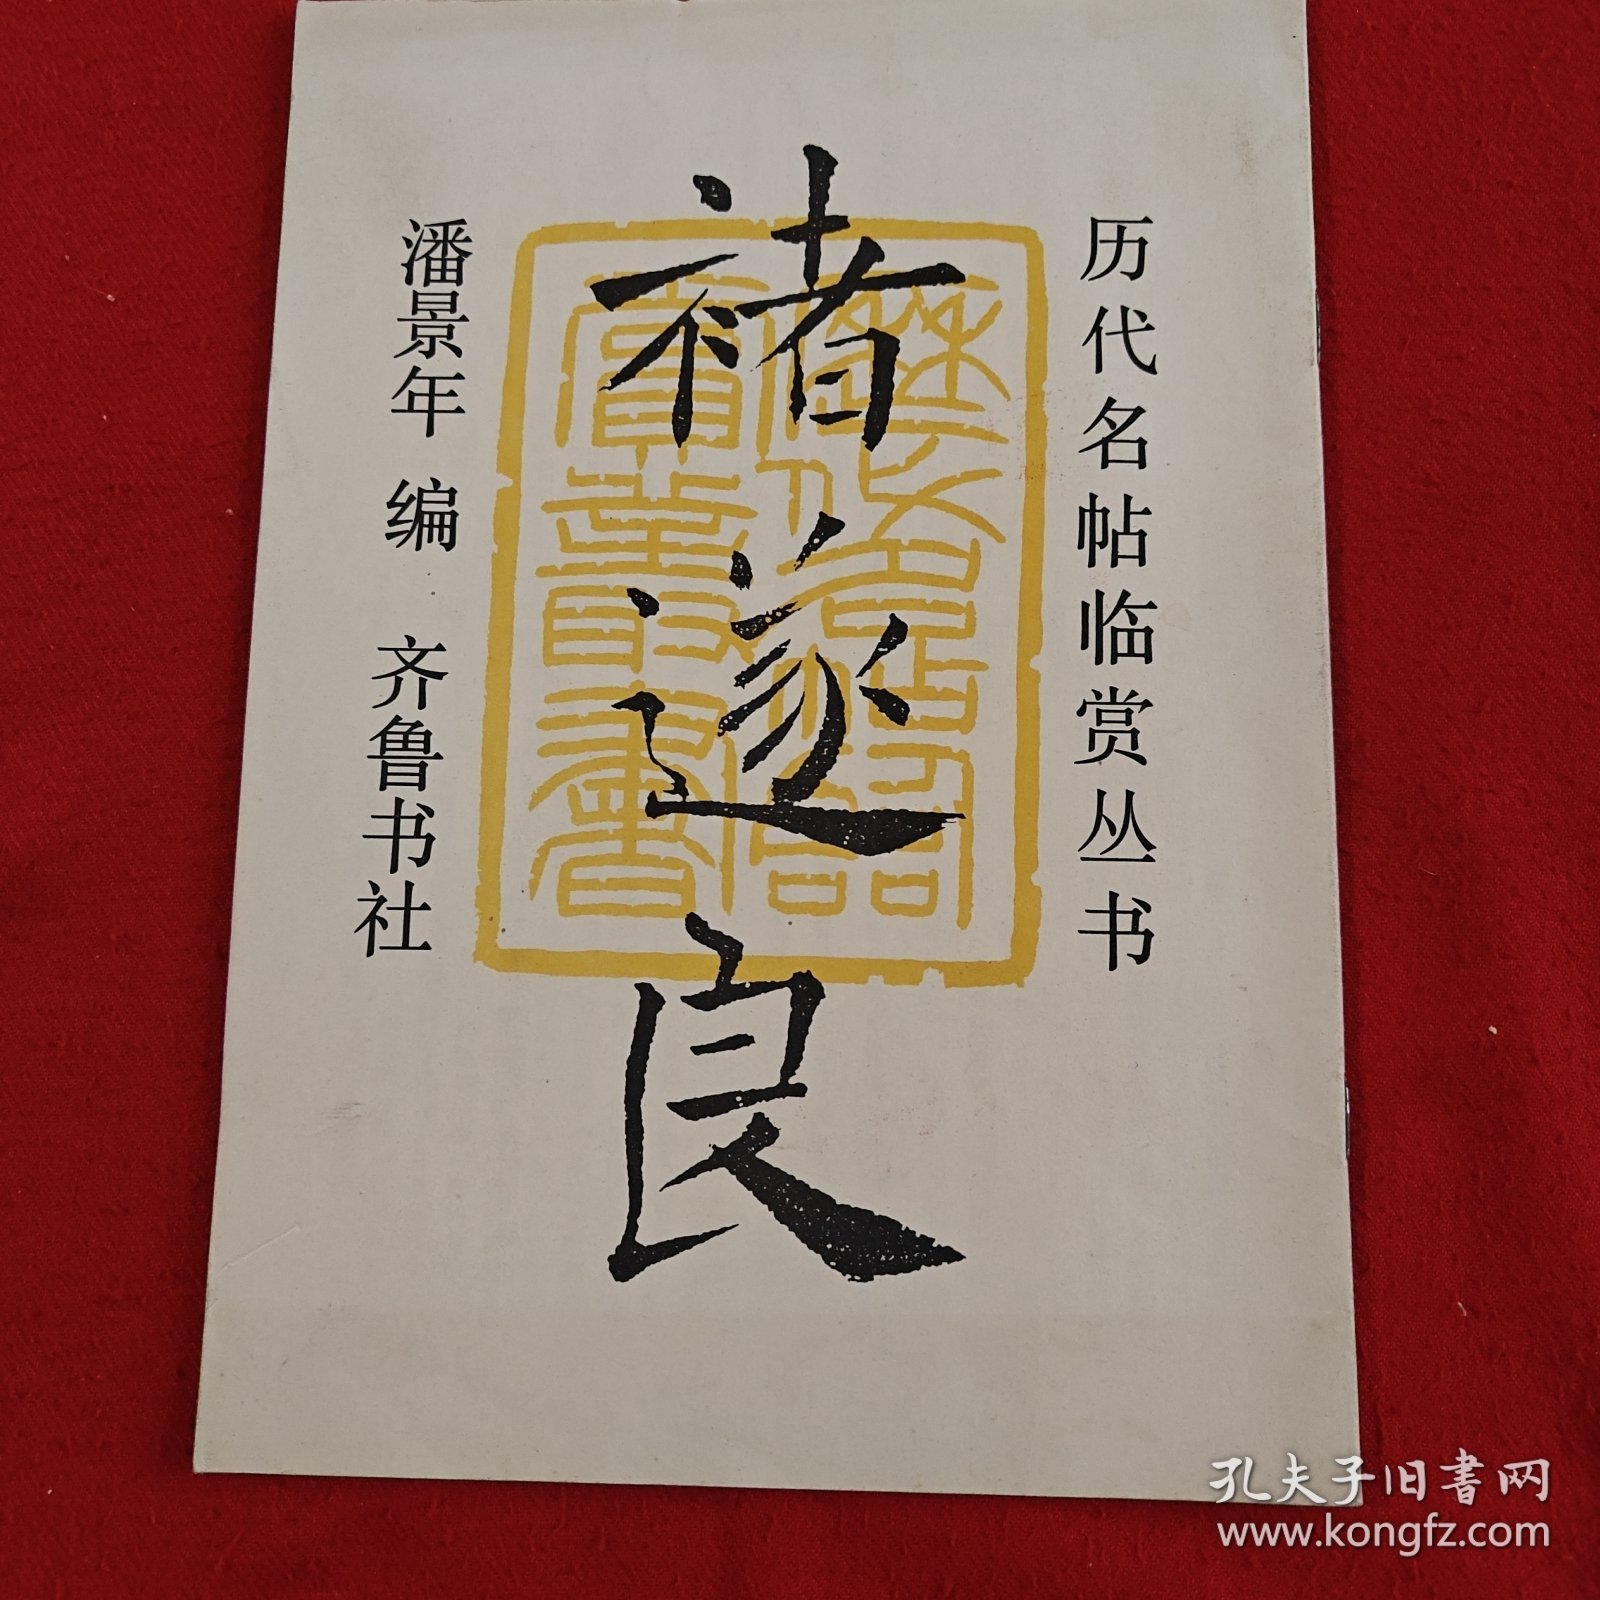 历代名帖临赏丛书
褚遂良
潘景年 编 齐鲁书社
孔夫子旧书网
www.kongfz.com